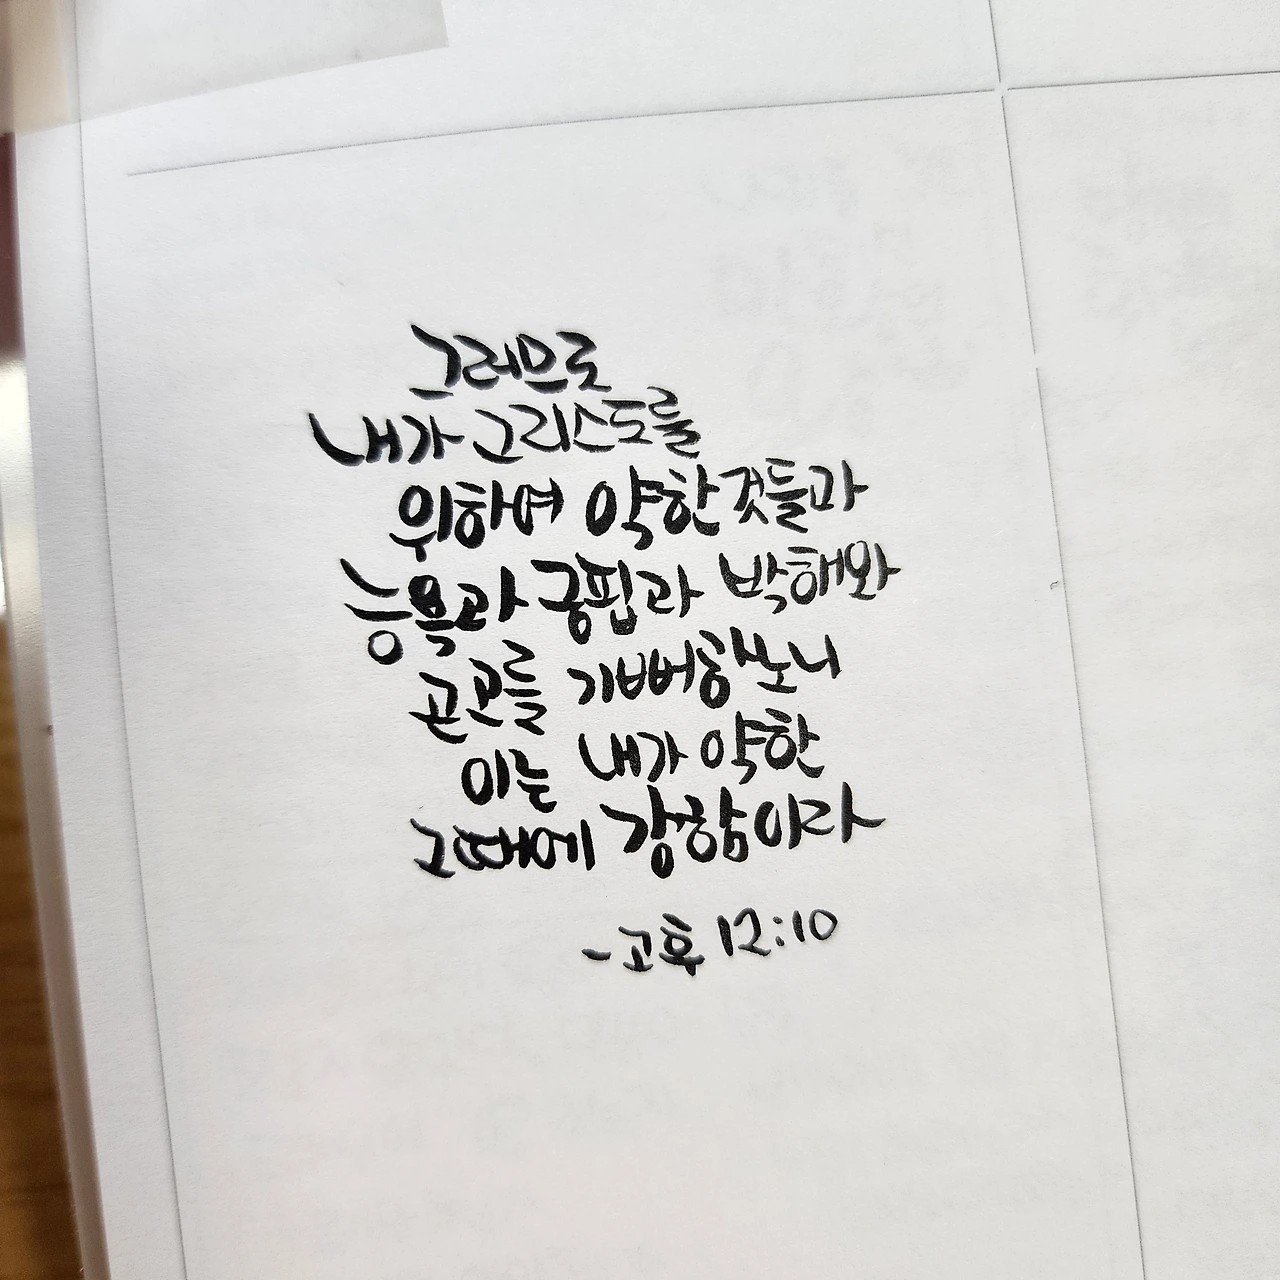 그러므로
내가 그리스도를
위하여 약한것들과
능욕과 궁핍과 박해와
곤고를 기뻐하노니
이는 내가 약한
그때에 강함이라
- 고후 12:10